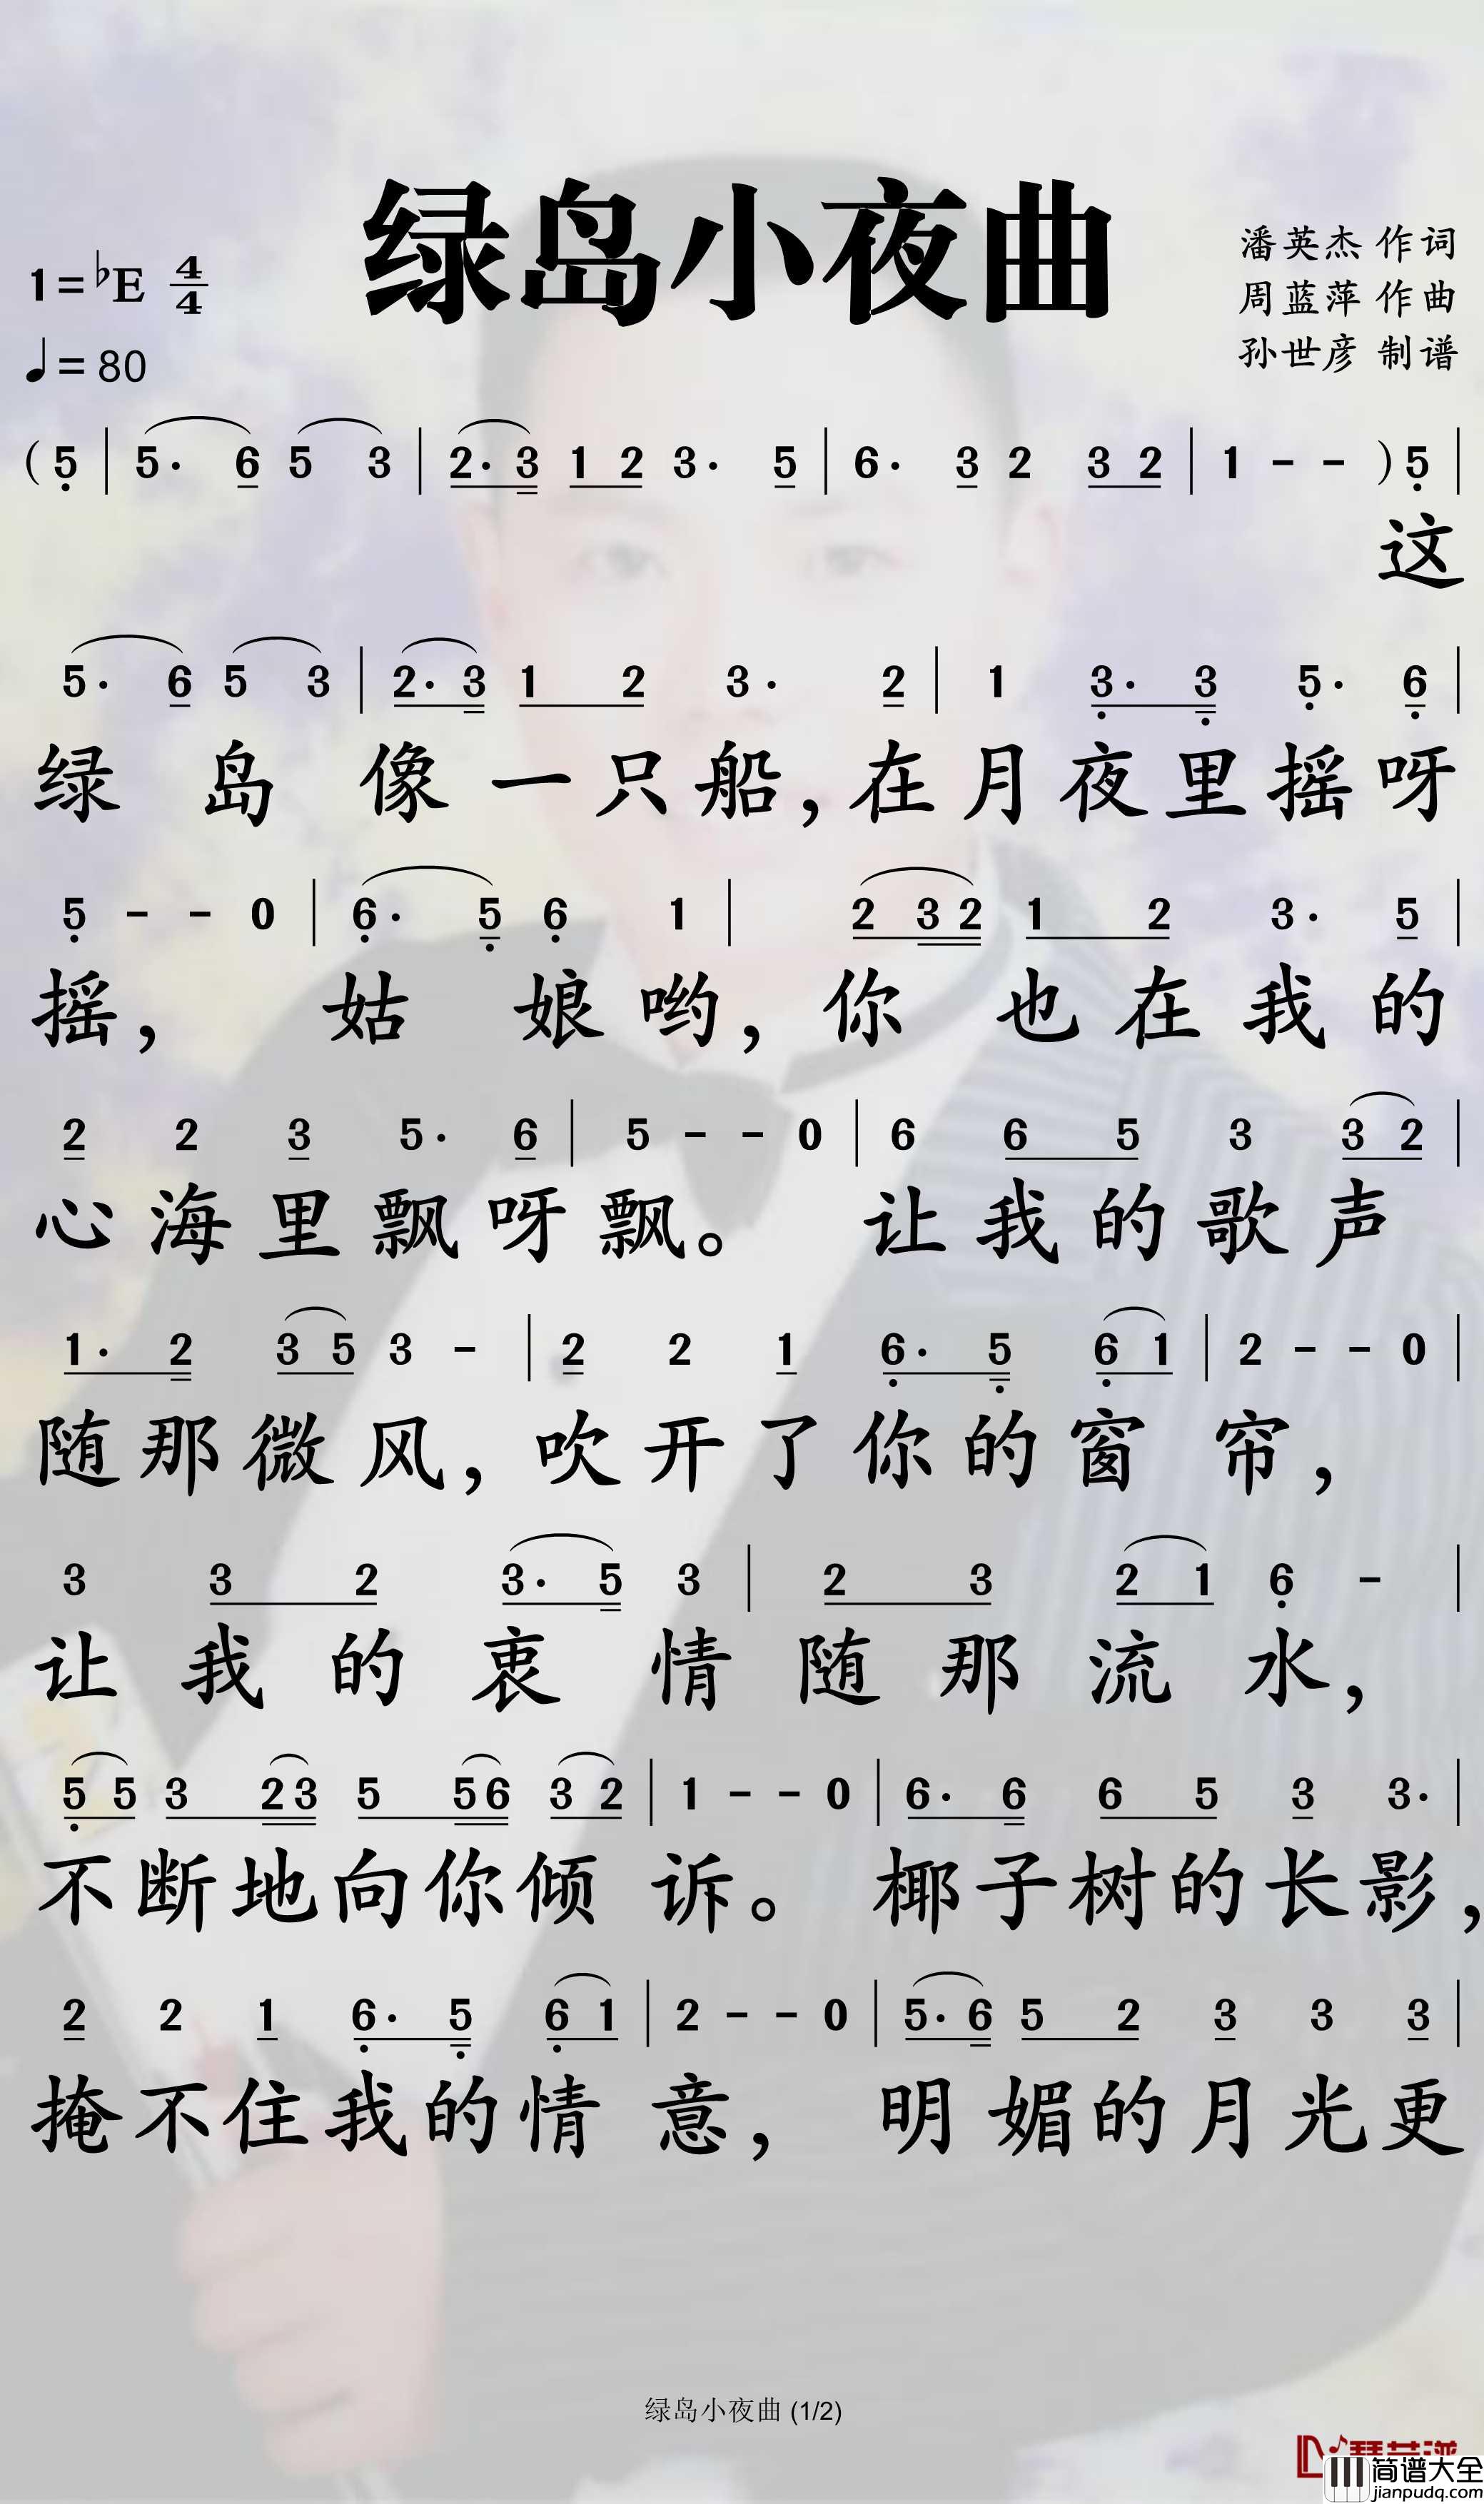 绿岛小夜曲
潘英杰 作词
周蓝萍 作曲
孙世彦 制谱
1=♭E 4/4
♩=80
(5̣ | 5· 6 5 3 | 2· 3 1 2 3· 5 | 6· 3 2 3 2 | 1 - - ) 5̣ |
这
5· 6 5 3 | 2· 3 1 2 3· 2 | 1 3̣· 3̣ 5̣· 6̣ |
绿岛像一只船,在月夜里摇呀
5̣ - - 0 | 6̣· 5̣ 6̣ 1 | 2 3 2 1 2 3· 5 |
摇, 姑娘哟,你也在我的
2 2 3 5· 6 | 5 - - 0 | 6 6 5 3 3 2 |
心海里飘呀飘。 让我的歌声
1· 2 3 5 3 - | 2 2 1 6̣· 5̣ 6̣ 1 | 2 - - 0 |
随那微风,吹开了你的窗帘,
3 3 2 3· 5 3 | 2 3 2 1 6̣ - |
让我的衷情随那流水,
5̣ 5 3 2 3 5 5 6 3 2 | 1 - - 0 | 6· 6 6 5 3 3· |
不断地向你倾诉。椰子树的长影,
2 2 1 6̣· 5̣ 6̣ 1 | 2 - - 0 | 5· 6 5 2 3 3 3 |
掩不住我的情意, 明媚的月光更
绿岛小夜曲 (1/2)
简谱大全
jianpudq.com